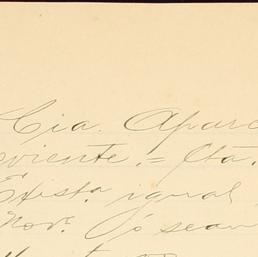 Cia. Aparc
viente. = Cta.
Exist.ª igual
Nov.e ó sean